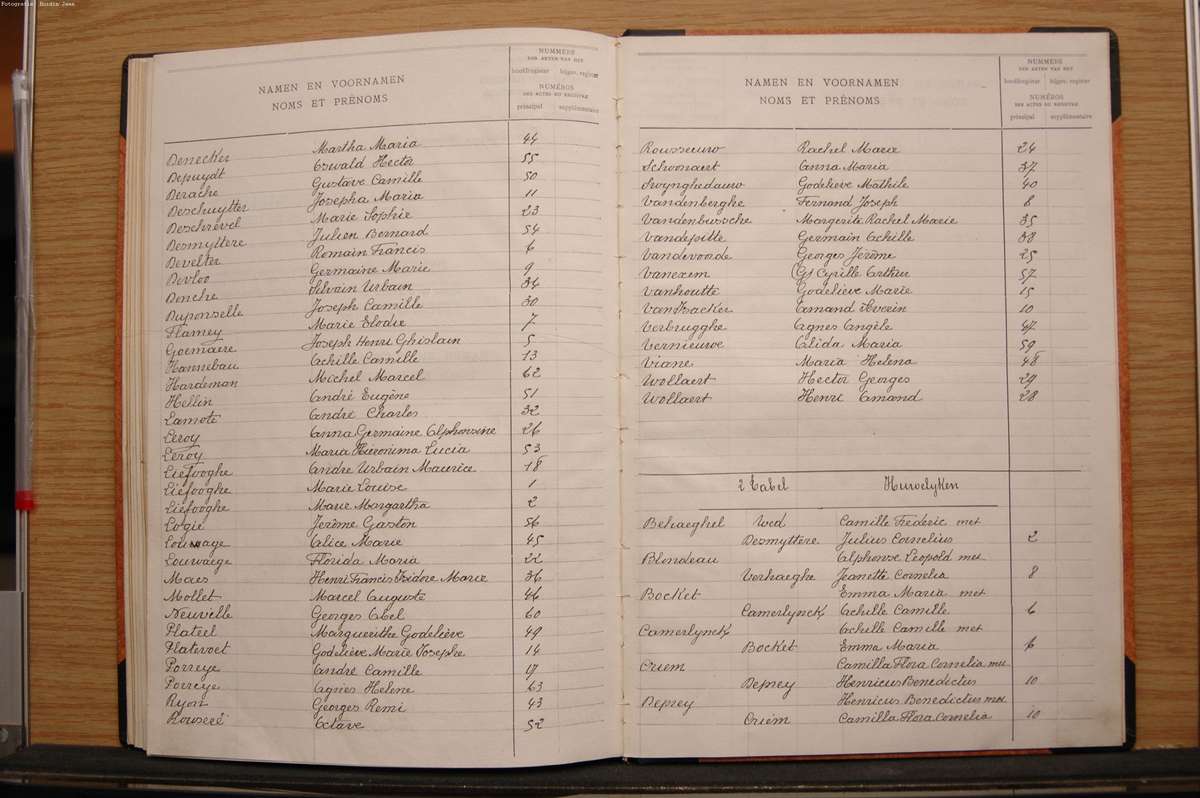 Fotografie: Burdin Jean
NUMMERS
DER AKTEN VAN HET
hoofdregister bijgev. register
NAMEN EN VOORNAMEN
NOMS ET PRÉNOMS
NUMÉROS
DES ACTES DU REGISTRE
principal supplémentaire
Denecker Martha Maria 44
Depuydt Oswald Hector 55
Derache Gustave Camille 50
Deschuytter Josepha Maria 11
Deschrevel Marie Sophie 23
Desmyttere Julien Bernard 54
Develter Romain Francis 4
Devloo Germaine Marie 9
Donche Silvain Urbain 34
Duponselle Joseph Camille 30
Flamey Marie Elodie 7
Goemaere Joseph Henri Ghislain 5
Hannebau Achille Camille 13
Hardeman Michel Marcel 62
Hellin André Eugène 51
Lamote André Charles 32
Leroy Anna Germaine Alphonsine 26
Leroy Maria Hieronima Lucia 53
Liefooghe Andre Urbain Maurice 18
Liefooghe Marie Louise 1
Liefooghe Marie Margartha 2
Logie Jerôme Gaston 56
Louwage Alice Marie 45
Louwaege Florida Maria 22
Maes Henri Francis Isidore Marie 36
Mollet Marcel Auguste 46
Neuville Georges Abel 60
Plateel Marguerithe Godeliève 49
Platevoet Godelieve Marie Josephe 14
Porreye André Camille 17
Porreye Agnes Helene 63
Ryon Georges Remi 43
Rouseré Octave 52
NUMMERS
DER AKTEN VAN HET
hoofdregister bijgev. register
NAMEN EN VOORNAMEN
NOMS ET PRÉNOMS
NUMÉROS
DES ACTES DU REGISTRE
principal supplémentaire
Rousseuw Rachel Marie 24
Schonaert Anna Maria 37
Swynghedauw Godelieve Mathile 40
Vandenberghe Fernand Joseph 8
Vandenbussche Margerite Rachel Marie 35
Vandepitte Germain Achille 38
Vandevoorde Georges Jerôme 25
Vanexem Cyrille Arthur 57
Vanhoutte Godelieve Marie 15
VanIsacker Amand 10
Verbrugghe Agnes Angèle 47
Vernieuwe Alida Maria 59
Viane Maria Helena 48
Wollaert Hector Georges 29
Wollaert Henri Amand 28
2 Tabel Huwelyken
Behaeghel Wed Camille Fréderic met
Desmyttere Julius Cornelius 2
Blondeau Alphonse Leopold met
Verhaeghe Jeanette Cornelia 8
Bocket Emma Maria met
Camerlynck Achille Camille 6
Camerlynck Achille Camille met
Bocket Emma Maria 6
Criem Camilla Flora Cornelia met
Deprey Henricus Benedictus 10
Deprey Henricus Benedictus met
Criem Camilla Flora Cornelia 10